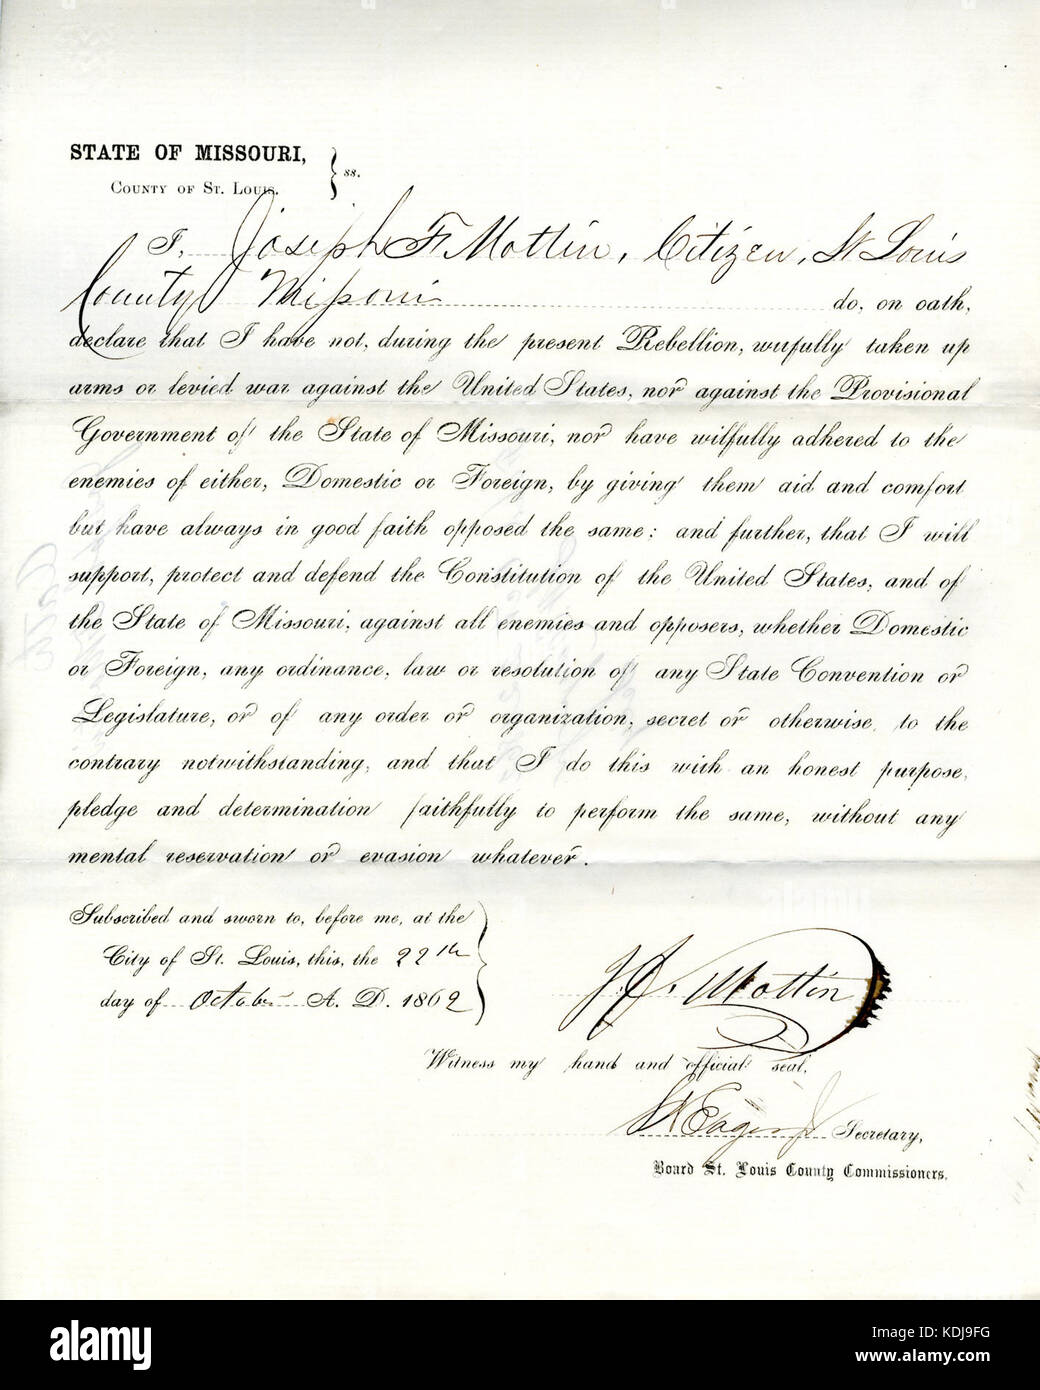 STATE OF MISSOURI,
COUNTY OF ST. LOUIS. } ss.
I, Joseph F. Mottin, Citizen, St Louis
County Missouri do, on oath,
declare that I have not, during the present Rebellion, wilfully taken up
arms or levied war against the United States, nor against the Provisional
Government of the State of Missouri, nor have wilfully adhered to the
enemies of either, Domestic or Foreign, by giving them aid and comfort
but have always in good faith opposed the same: and further, that I will
support, protect and defend the Constitution of the United States, and of
the State of Missouri, against all enemies and opposers, whether Domestic
or Foreign, any ordinance, law or resolution of any State Convention or
Legislature, or of any order or organization, secret or otherwise, to the
contrary notwithstanding, and that I do this with an honest purpose,
pledge and determination faithfully to perform the same, without any
mental reservation or evasion whatever.
Subscribed and sworn to, before me, at the
City of St. Louis, this, the 22th
day of October A. D. 1862
J. F. Mottin
Witness my hand and official seal,
Secretary,
Board St. Louis County Commissioners.
alamy
Image ID: KDJ9FG
www.alamy.com